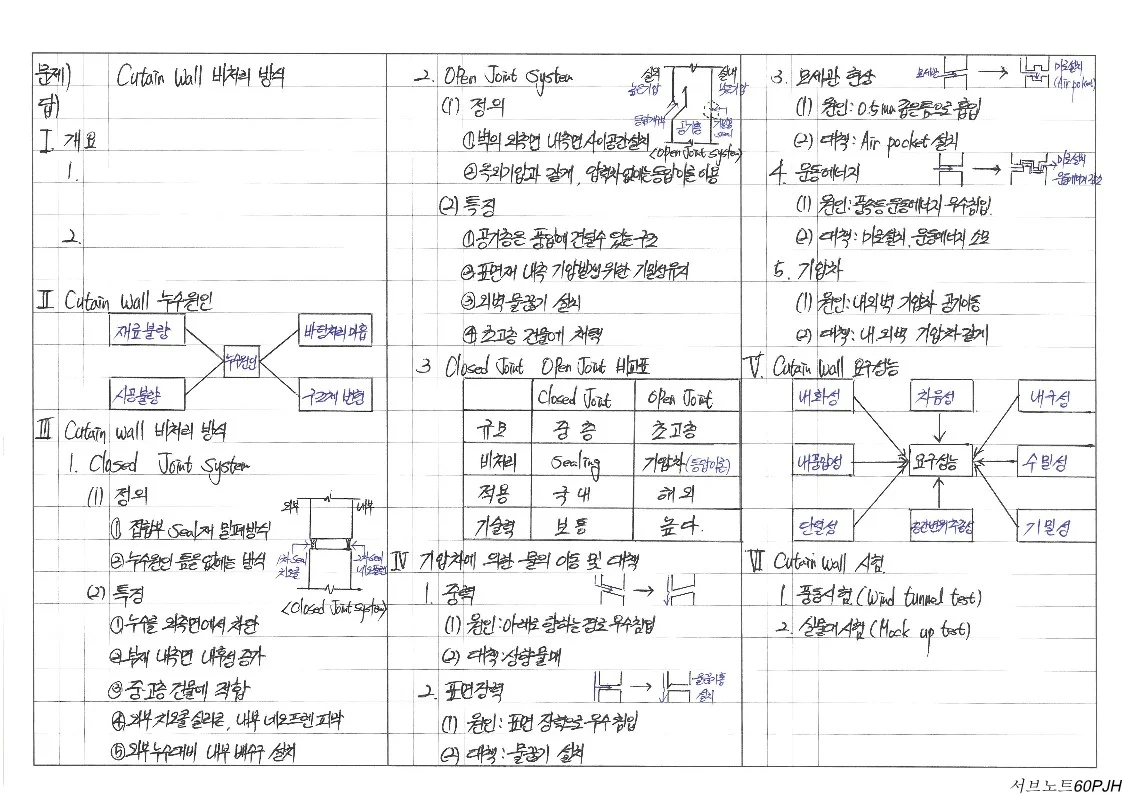 문제) Cutain Wall 비처리 방식
답)
I 개요
1.
2.
II Cutain Wall 누수원인
재료불량 바탕처리미흡
누수원인
시공불량 구조체 변형
III Cutain Wall 비처리 방식
1. Closed Joint System
(1) 정의
① 접합부 Seal재 밀폐방식
② 누수원인 틈을 없애는 방식
외부 내부
1차 Seal 치오콜
2차 Seal 네오프렌
<Closed Joint System>
(2) 특징
① 누수를 외측면에서 차단
② 부재 내측면 내후성 증가
③ 중고층 건물에 적합
④ 외부 치오콜 실리콘, 내부 네오프렌 피막
⑤ 외부누수대비 내부 배수구 설치
2. Open Joint System
(1) 정의
① 벽의 외측면 내측면 사이공간설치
② 옥외기압과 같게, 압력차 없애는 등압이론 이용
실외 높은기압
실내 낮은기압
공기층
<Open Joint System>
(2) 특징
① 공기층은 풍압에 견딜수 있는 구조
② 표면재 내측 기압발생 위한 기밀성유지
③ 외벽 물끊기 설치
④ 초고층 건물에 채택
3 Closed Joint Open Joint 비교표
Closed Joint Open Joint
규모 중층 초고층
비처리 Sealing 기압차(등압이론)
적용 국내 해외
기술력 보통 높다.
IV 기압차에 의한 물의 이동 및 대책
1. 중력
(1) 원인: 아래로 향하는 경로 우수침입
(2) 대책: 상향물매
2. 표면장력
물끊기홈 설치
(1) 원인: 표면 장력으로 우수침입
(2) 대책: 물끊기 설치
3. 모세관 현상
모세관
미로설치 (Air poket)
(1) 원인: 0.5mm 좁은틈으로 흡입
(2) 대책: Air pocket 설치
4. 운동에너지
미로설치 운동에너지 감소
(1) 원인: 풍속등 운동에너지 우수침입.
(2) 대책: 미로설치, 운동에너지 소모
5. 기압차
(1) 원인: 내외벽 기압차 공기이동
(2) 대책: 내.외벽 기압차 같게
V. Cutain Wall 요구성능
내화성 차음성 내구성
내풍압성 요구성능 수밀성
단열성 층간변위추종성 기밀성
VI Cutain Wall 시험.
1. 풍동시험 (Wind tunnel test)
2. 실물대시험 (Mock up test)
서브노트60PJH